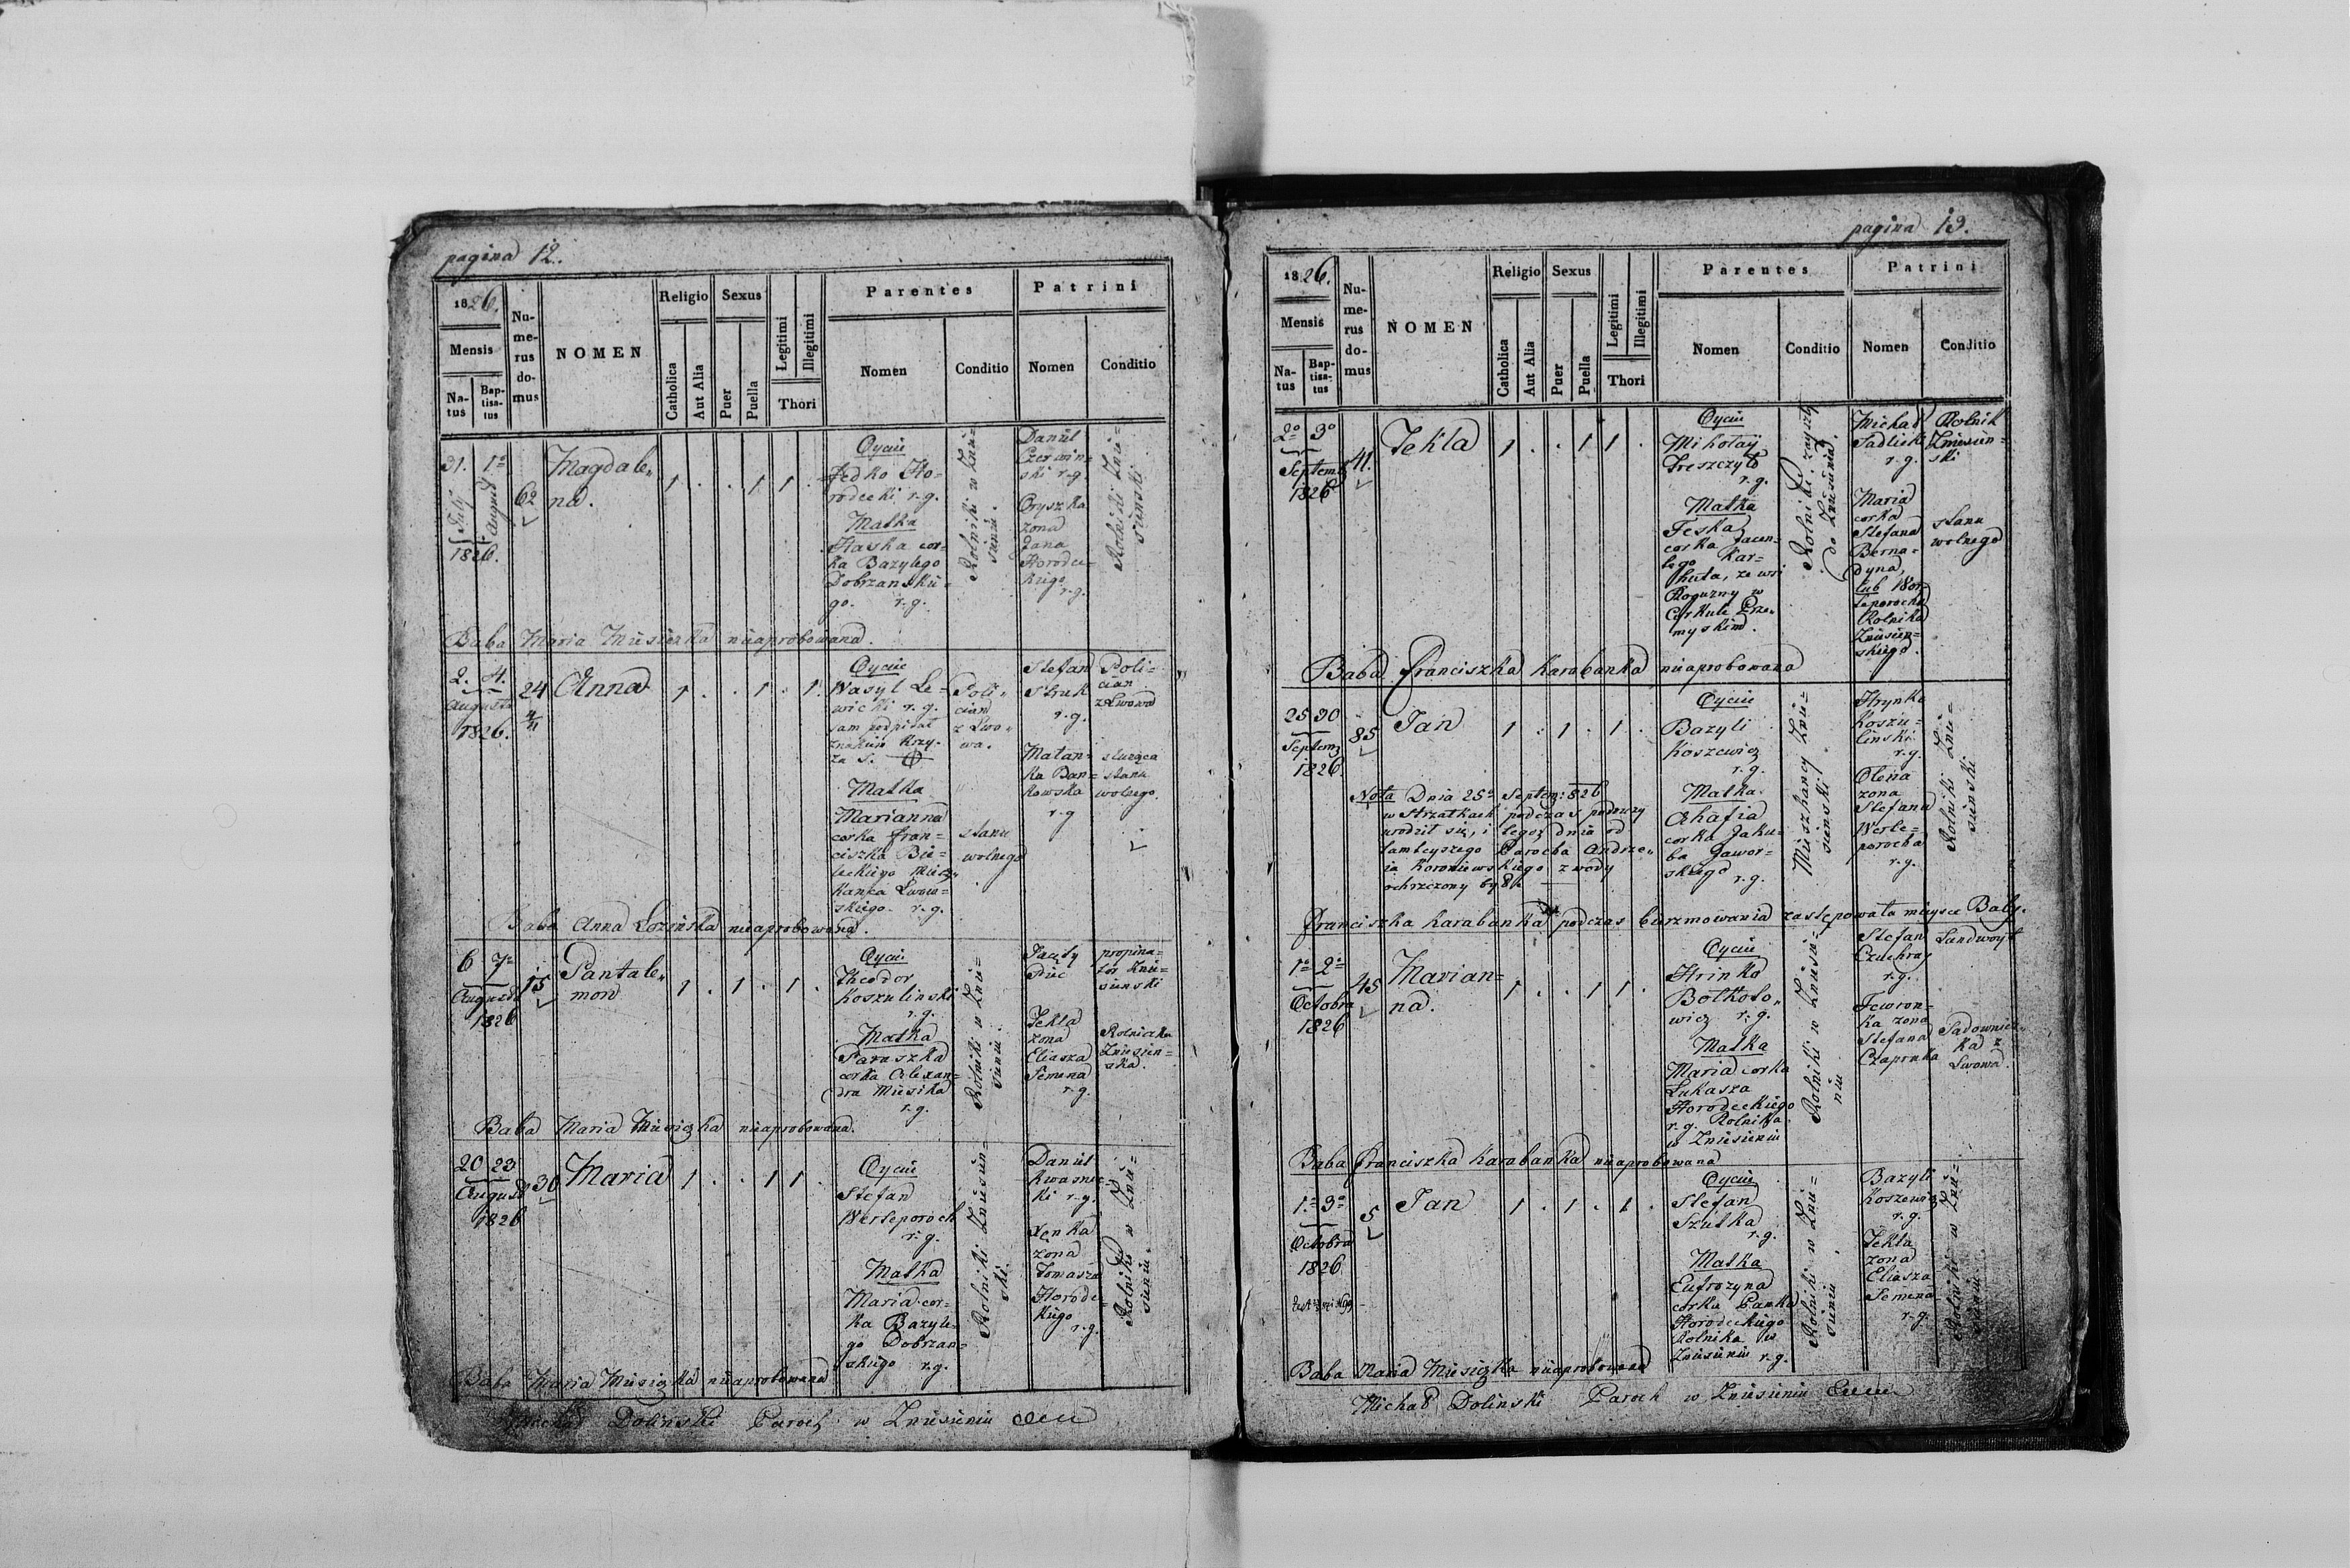 pagina 12.
1826.
Mensis
Na-
tus
Bap-
tisa-
tus
Nu-
me-
rus
do-
mus
NOMEN
Religio
Catholica
Aut Alia
Sexus
Puer
Puella
Legitimi
Illegitimi
Thori
Parentes
Nomen
Conditio
Patrini
Nomen
Conditio
31. 1a
July August
1826.
62
Magdale-
na.
1 . . 1 1 .
Oyciec
Fedko Ho-
rodecki r.g.
Matka
Haska cor-
ka Bazylego
Dobrzanskie-
go. r.g.
Rolniki w Znie-
sieniu.
Daniel
Czerwin-
ski r.g.
Oryszka
zona
Jana
Horodec-
kiego
r.g.
Rolniki Znie-
sienski
Baba Maria Musiczka nieaprobowana.
2. 4.
Augusta
1826.
24
Anna
1 . . 1 . 1.
Oyciec
Wasyl Le-
wicki r.g.
sam podpisał
znakiem krzy-
za S.
Matka
Marianna
corka Fran-
ciszka Bie-
leckiego Miesz-
kanca Lwow-
skiego. r.g.
Poli-
cian
z Lwo-
wa.
stanu
wolnego
Stefan
r.g.
Matan-
ka Ban-
kowska
r.g
Poli-
cian
z Lwowa
słuząca
stanu
wolnego.
Baba Anna Lozinska nieaprobowana.
6 7a
Augusta
1826
15
Pantale-
mon
1 . 1 . 1 .
Oyciec
Theodor
Koszulinski
r.g.
Matka
Paraszka
corka Alexan-
dra Musika
r.g.
Rolniki w Znie-
sieniu.
Jacty
Tekla
zona
Eliasza
Semena
r.g.
propina-
tor Znie-
sienski
Rolniczka
Zniesien-
ska.
Baba Maria Musiczka nieaprobowana.
20 23
August
1826
30
Maria
1 . . 1 1 .
Oyciec
Stefan
Werteporoch
r.g.
Matka
Maria cor-
ka Bazyle-
go Dobrzan-
skiego r.g.
Rolniki Zniesien-
ski.
Daniel
Kwasnic-
ki r.g.
zona
Tomasza
Horodec-
kiego
r.g.
Rolniki w Znie-
sieniu.
Baba Maria Musiczka nieaprobowana
Michał Dolinski Paroch w Zniesieniu
pagina 13.
1826.
Mensis
Na-
tus
Bap-
tisa-
tus
Nu-
me-
rus
do-
mus
NOMEN
Religio
Catholica
Aut Alia
Sexus
Puer
Puella
Legitimi
Illegitimi
Thori
Parentes
Nomen
Conditio
Patrini
Nomen
Conditio
2o 3o
Septem
1826
41.
Tekla
1 . . 1 1 .
Oyciec
Mikołay
Treszczyło
r.g.
Matka
Teska
corka Jacen-
tego Kar-
huta, ze wsi
Roguzny w
Cyrkule Prze-
myskim.
Rolniki zayszły
do Zniesienia.
Michał
Sadlicki
r.g.
Maria
corka
Stefana
Berna-
dyna,
lub Wor-
teporocha
Rolnika
Zniesien-
skiego.
Rolnik
Zniesien-
ski
stanu
wolnego
Baba Franciszka Karabanka nieaprobowana
25 30
Septem
1826
85
Jan
1 . 1 . 1 .
Oyciec
Bazyli
Koszewicz
r.g.
Matka.
Ahafia
corka Jaku-
ba Jawor-
skiego
r.g.
Mieszkancy Znie-
sienski.
Hrynko
Koszu-
linski
r.g.
Olena
zona
Stefana
Werte-
porocha
r.g.
Rolniki Znie-
sienski
Nota Dnia 25o Septem: 826
w Strzałkach podczas podruzy
urodził się, i tegoz dnia od
tamteyszego Parocha Andrze-
ia Koroniewskiego z wody
ochrzczony był.
Franciszka Karabanka podczas burzmowania zastępowała mieysce Baby.
1a 2a
Octobra
1826
45
Marian-
na.
1 . . 1 1 .
Oyciec
Hrinko
Botkoło-
wicz r.g.
Matka
Maria corka
Lukasza
Horodeckiego
r.g. Rolnika
w Zniesieniu
Rolniki w Zniesie-
niu
Stefan
Czuchray
r.g.
Fewron-
ka zona
Stefana
Czaprnka
Landwoyt
Sadownicz-
ka z
Lwowa.
Baba Franciszka Karabanka nieaprobowana
1a 3a
Octobra
1826
5
Jan
1 . 1 . 1 .
Oyciec
Stefan
Szutka
r.g.
Matka
Eufrozyna
corka Panka
Horodeckiego
Rolnika w
Zniesieniu r.g.
Rolniki w Znie-
sieniu.
Bazyli
Koszewicz
r.g.
Tekla
zona
Eliasza
Semena
r.g.
Rolniki w Znie-
sieniu.
Baba Maria Musiczka nieaprobowana
Michał Dolinski Paroch w Zniesieniu